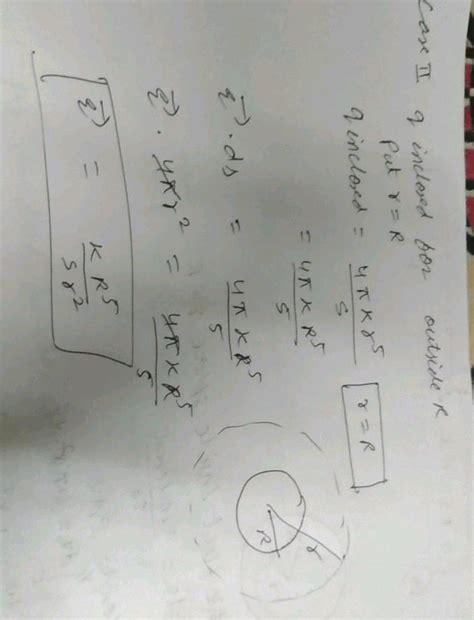 Case II q inclosed for outside R
Put r = R
q inclosed = 4πkr⁵/5 r = R
= 4πkR⁵/5
E⃗ · ds = 4πkR⁵/5
E⃗ · 4πr² = 4πkR⁵/5
E⃗ = kR⁵/5r²
r
R